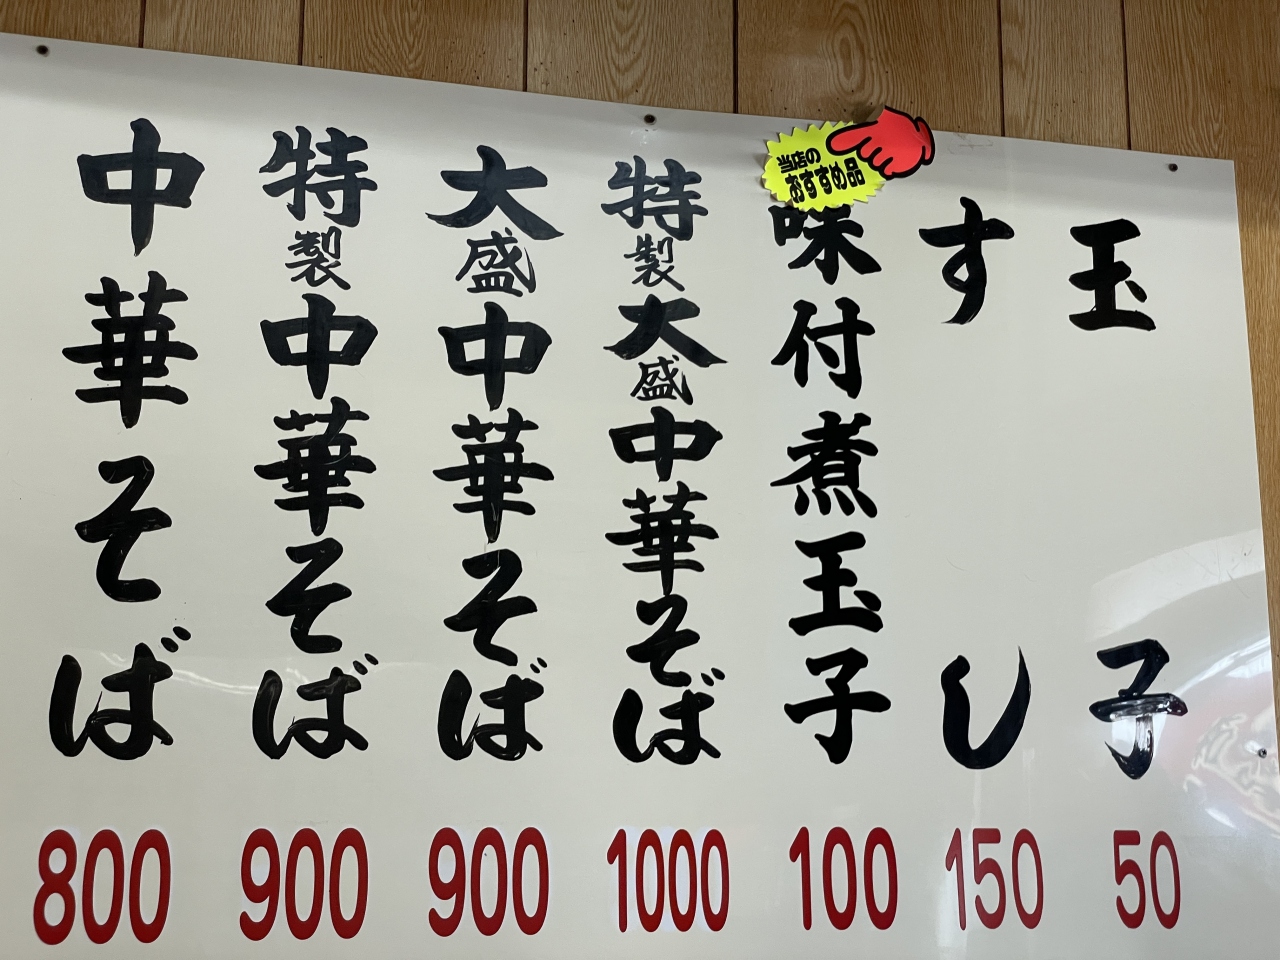 中華そば
800
特製中華そば
900
大盛中華そば
900
特製大盛中華そば
1000
当店の
おすすめ品
味付煮玉子
100
すし
150
玉子
50